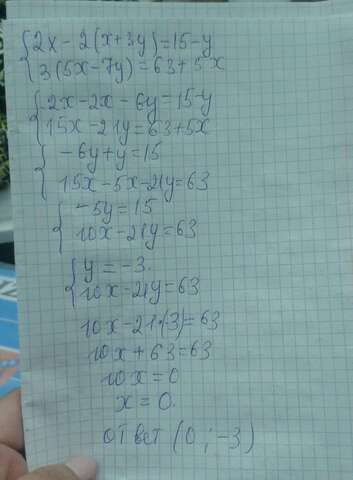 {2x - 2(x+3y)=15-y
3(5x-7y)=63+5x
{2x-2x-6y=15-y
15x-21y=63+5x
{-6y+y=15
15x-5x-21y=63
{-5y=15
10x-21y=63
{y=-3.
10x-21y=63
10x-21·(-3)=63
10x+63=63
10x=0
x=0.
ответ (0;-3)